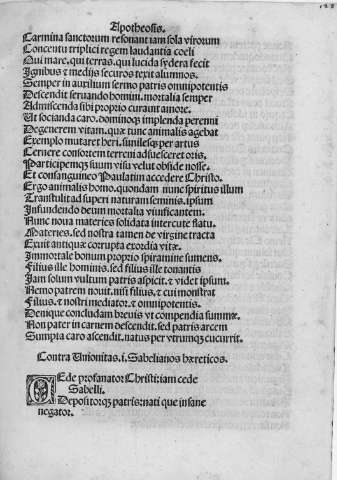 Apotheosis.
Carmina sanctorum resonant iam sola virorum
Concentu triplici regem laudantia coeli
Qui mare, qui terras, qui lucida sydera fecit
Ignibus & medijs securos texit alumnos.
Semper in auxilium sermo patris omnipotentis
Descendit seruando homini. mortalia semper
Admiscenda sibi proprio curauit amore.
Ut socianda caro. dominoq; implenda perenni
Degenerem vitam. quæ tunc animalis agebat
Exemplo mutaret heri. similesq; per artus
Cernere consortem terreni adsuesceret oris.
Participemq; suum visu velut obside nosse.
Et consanguineo Paulatim accedere Christo.
Ergo animalis homo. quondam nunc spiritus illum
Transtulit ad superi naturam seminis. ipsum
Infundendo deum mortalia viuificantem.
Nunc noua materies solidata intercute flatu.
Materies. sed nostra tamen de virgine tracta
Exuit antiquæ corrupta exordia vitæ.
Immortale bonum proprio spiramine sumens.
Filius ille hominis. sed filius ille tonantis
Iam solum vultum patris aspicit. & videt ipsum.
Nemo patrem nouit. nisi filius. & cui monstrat
Filius. & nostri mediator. & omnipotentis.
Denique concludam breuis vt compendia summæ.
Non pater in carnem descendit. sed patris arcem
Sumpta caro ascendit. natus per vtrumq; cucurrit.
Contra Unionitas. i. Sabelianos hæreticos.
CEde profanator Christi: iam cede
Sabelli.
Depositorq; patris: nati que insane
negator.